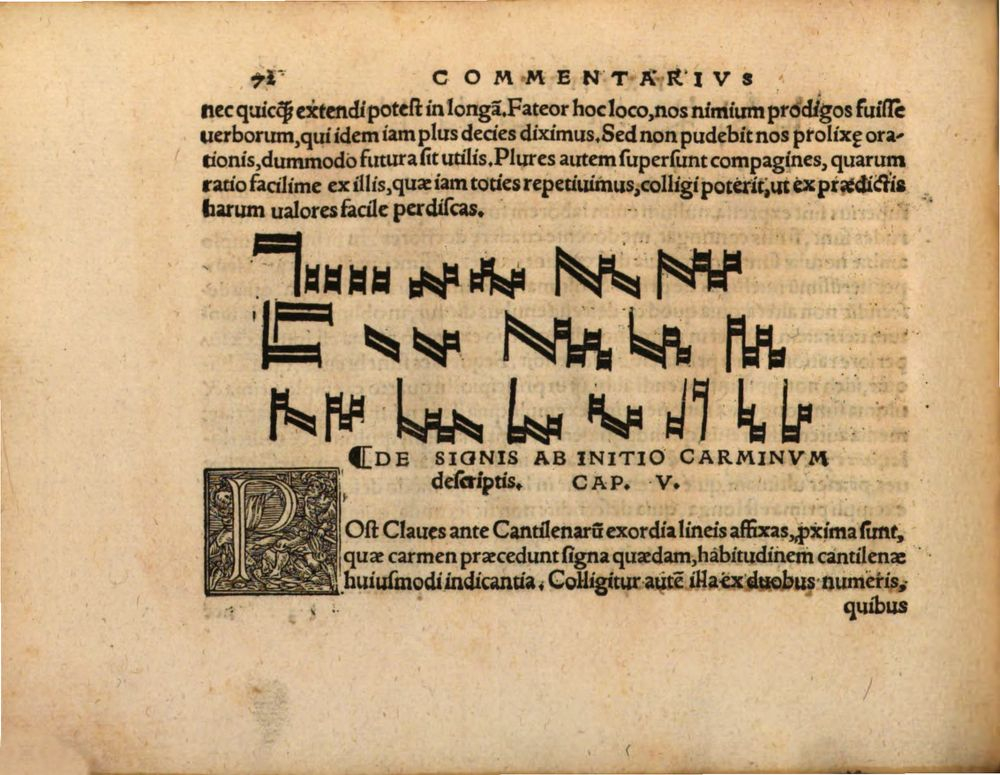 72 COMMENTARIVS
nec quicq̃ extendi potest in longã. Fateor hoc loco, nos nimium prodigos fuisse
uerborum, qui idem iam plus decies diximus. Sed non pudebit nos prolixę ora-
tionis, dummodo futura sit utilis. Plures autem supersunt compagines, quarum
ratio facilime ex illis, quæ iam toties repetiuimus, colligi poterit, ut ex prædictis
harum ualores facile perdiscas.
⁋DE SIGNIS AB INITIO CARMINVM
descriptis. CAP. V.
POst Claues ante Cantilenarũ exordia lineis affixas, ꝓxima sunt,
quæ carmen præcedunt signa quædam, habitudinem cantilenæ
huiusmodi indicantia. Colligitur autẽ illa ex duobus numeris,
quibus